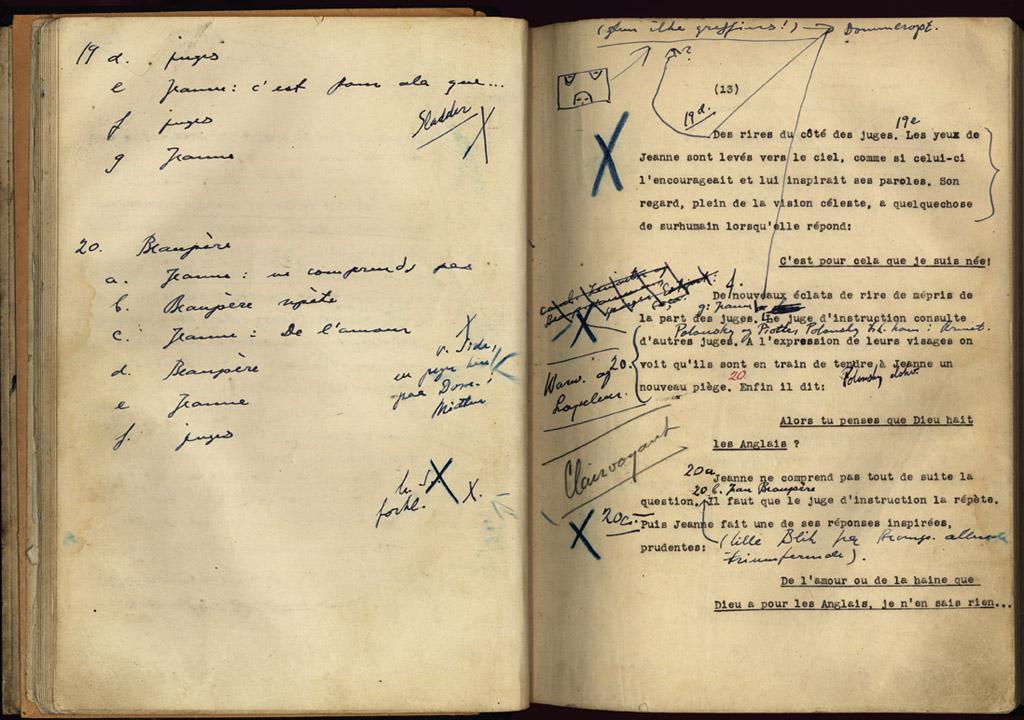 19 d. juges
e Jeanne: c'est pour cela que...
f juges
Sladder
g Jeanne
20. Beaupère
a. Jeanne: ne comprends pas
b. Beaupère répète
c. Jeanne: De l'amour
d. Beaupère
e Jeanne
f. juges
X
X.
Domineropt.
(13)
19d.
19e
Des rires du côté des juges. Les yeux de
Jeanne sont levés vers le ciel, comme si celui-ci
l'encourageait et lui inspirait ses paroles. Son
regard, plein de la vision céleste, a quelquechose
de surhumain lorsqu'elle répond:
C'est pour cela que je suis née!
De nouveaux éclats de rire de mépris de
g: Jeanne
la part des juges. Le juge d'instruction consulte
d'autres juges. A l'expression de leurs visages on
20.
voit qu'ils sont en train de tendre à Jeanne un
20
nouveau piège. Enfin il dit:
Warw. og
Loyseleur.
Alors tu penses que Dieu hait
les Anglais ?
Clairvoyant
20a
Jeanne ne comprend pas tout de suite la
20 b. Jean Beaupère
question. Il faut que le juge d'instruction la répète.
20c.
Puis Jeanne fait une de ses réponses inspirées,
prudentes:
(lille Blik fra
triumferende).
De l'amour ou de la haine que
Dieu a pour les Anglais, je n'en sais rien...